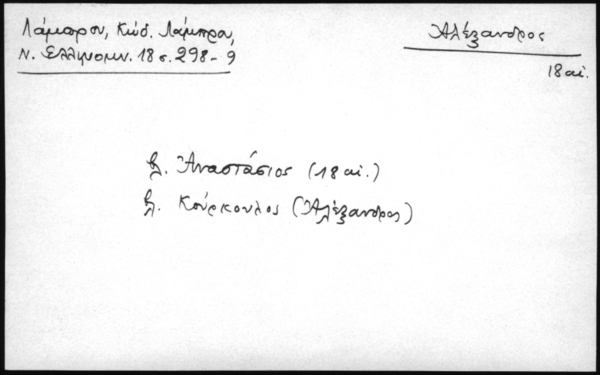 Λάμπρου, Κώδ. Λάμπρου,
Ν. Ελληνομν. 18 σ. 298-9
Ἀλέξανδρος
18 αἰ.
βλ. Ἀναστάσιος (18 αἰ.)
βλ. Κούρκουλος (Ἀλέξανδρος)